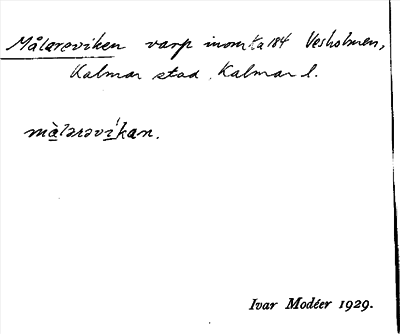 Målareviken varp inom ta 184 Vesholmen,
Kalmar stad, Kalmar l.
mὰlarəvi'kan.
Ivar Modéer 1929.